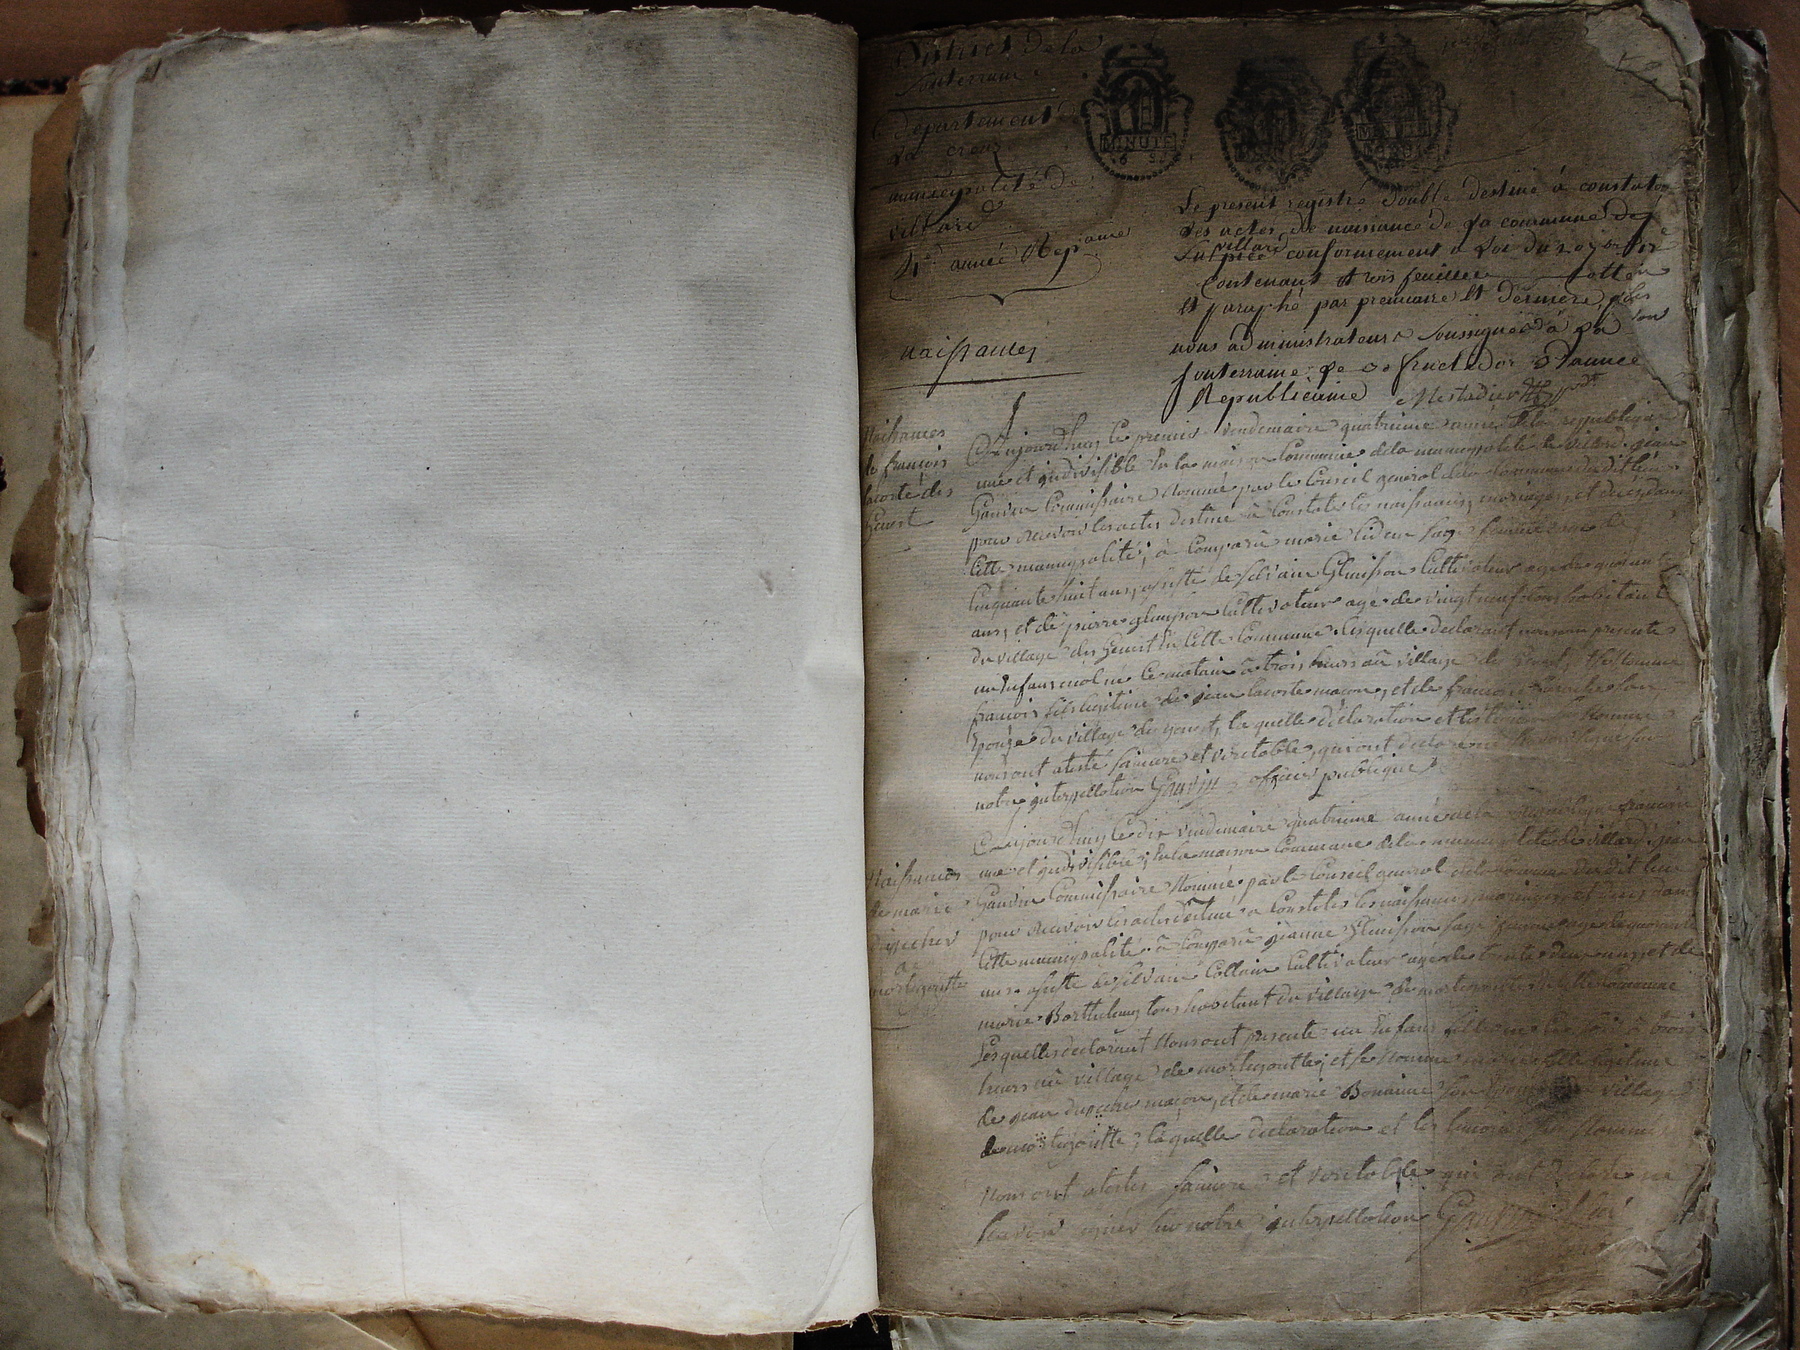 District de la
Souterraine
Departement de
La creuse
municipalité de
villard
4e année Repcaine
naissances
MINUTE
MINUTE
Le present registre double destiné à constater
les actes de naissance de La commune de
villard
conformement a Loi du 20 7bre
Contenant trois feuillets Cotté
Et paraphé par premiere Et derniere par
nous administrateurs Soussignés à La
Souterraine Le fructidor 3 année
Republicaine
Naissances
de françois
lacoste des
Genest
Aujourdhuy le premier vendemiaire quatrieme année de la republique
une et indivisible En la maison Commune de la municipalité de villard jean
Gauvin Commissaire Nommé par le Conseil general de la Commune du dit lieu
pour recevoir les actes destiné à Constater les naissances, mariages, et deces dans
Cette municipalité, à Comparu marie sage femme agé de
Cinquante huit ans, assisté de silvain Glenisson Cultivateur agé de quarante
ans, et de pierre glenisson Cultivateur agé de vingt neuf ans habitant
du village des Genest En Cette Commune Lesquelle declarant nous on presenté
un Enfans mal né le matain à trois heures au village des Genest, Nommé
françois fils legitime de jean lacoste maçon, et de françoise son
Epouze du village des genest, la quelle declaration et les temoins Nommé
nous ont atesté sincere et veritable, qui ont declaré ne savoir signe sur
notre interpellation Gauvin officier publique
Naissances
de marie
dupecher
de
mortegoutte
Aujourdhuy le dix vendemiaire quatrieme année de la Republique francaise
une et indivisible, En la maison Commune de la municipalité de villard jean
Gauvin Commissaire Nommé par le Conseil general de la commune du dit lieu
pour recevoir les actes destiné a Constater les naissances, mariages, et deces dans
Cette municipalité à Comparu jeanne Glenisson sage femme agé de quarante
ans assisté de silvain Collain Cultivateur agé de trente deux ans, et de
marie Barthelemy tous habitant du village de mortegoutte En Cette Commune
Lesquelles declarant Nous ont presenté un Enfans fille né le à trois
heures au village de mortegoutte, et se Nomme marie fille legitime
de jean dupecher maçon, et de marie Bonnine son village
de mortegoutte, la quelle declaration et les temoins Nommé
Nous ont atestés sincere et veritable qui ont declaré ne
savoir signer sur notre interpellation Gauvin